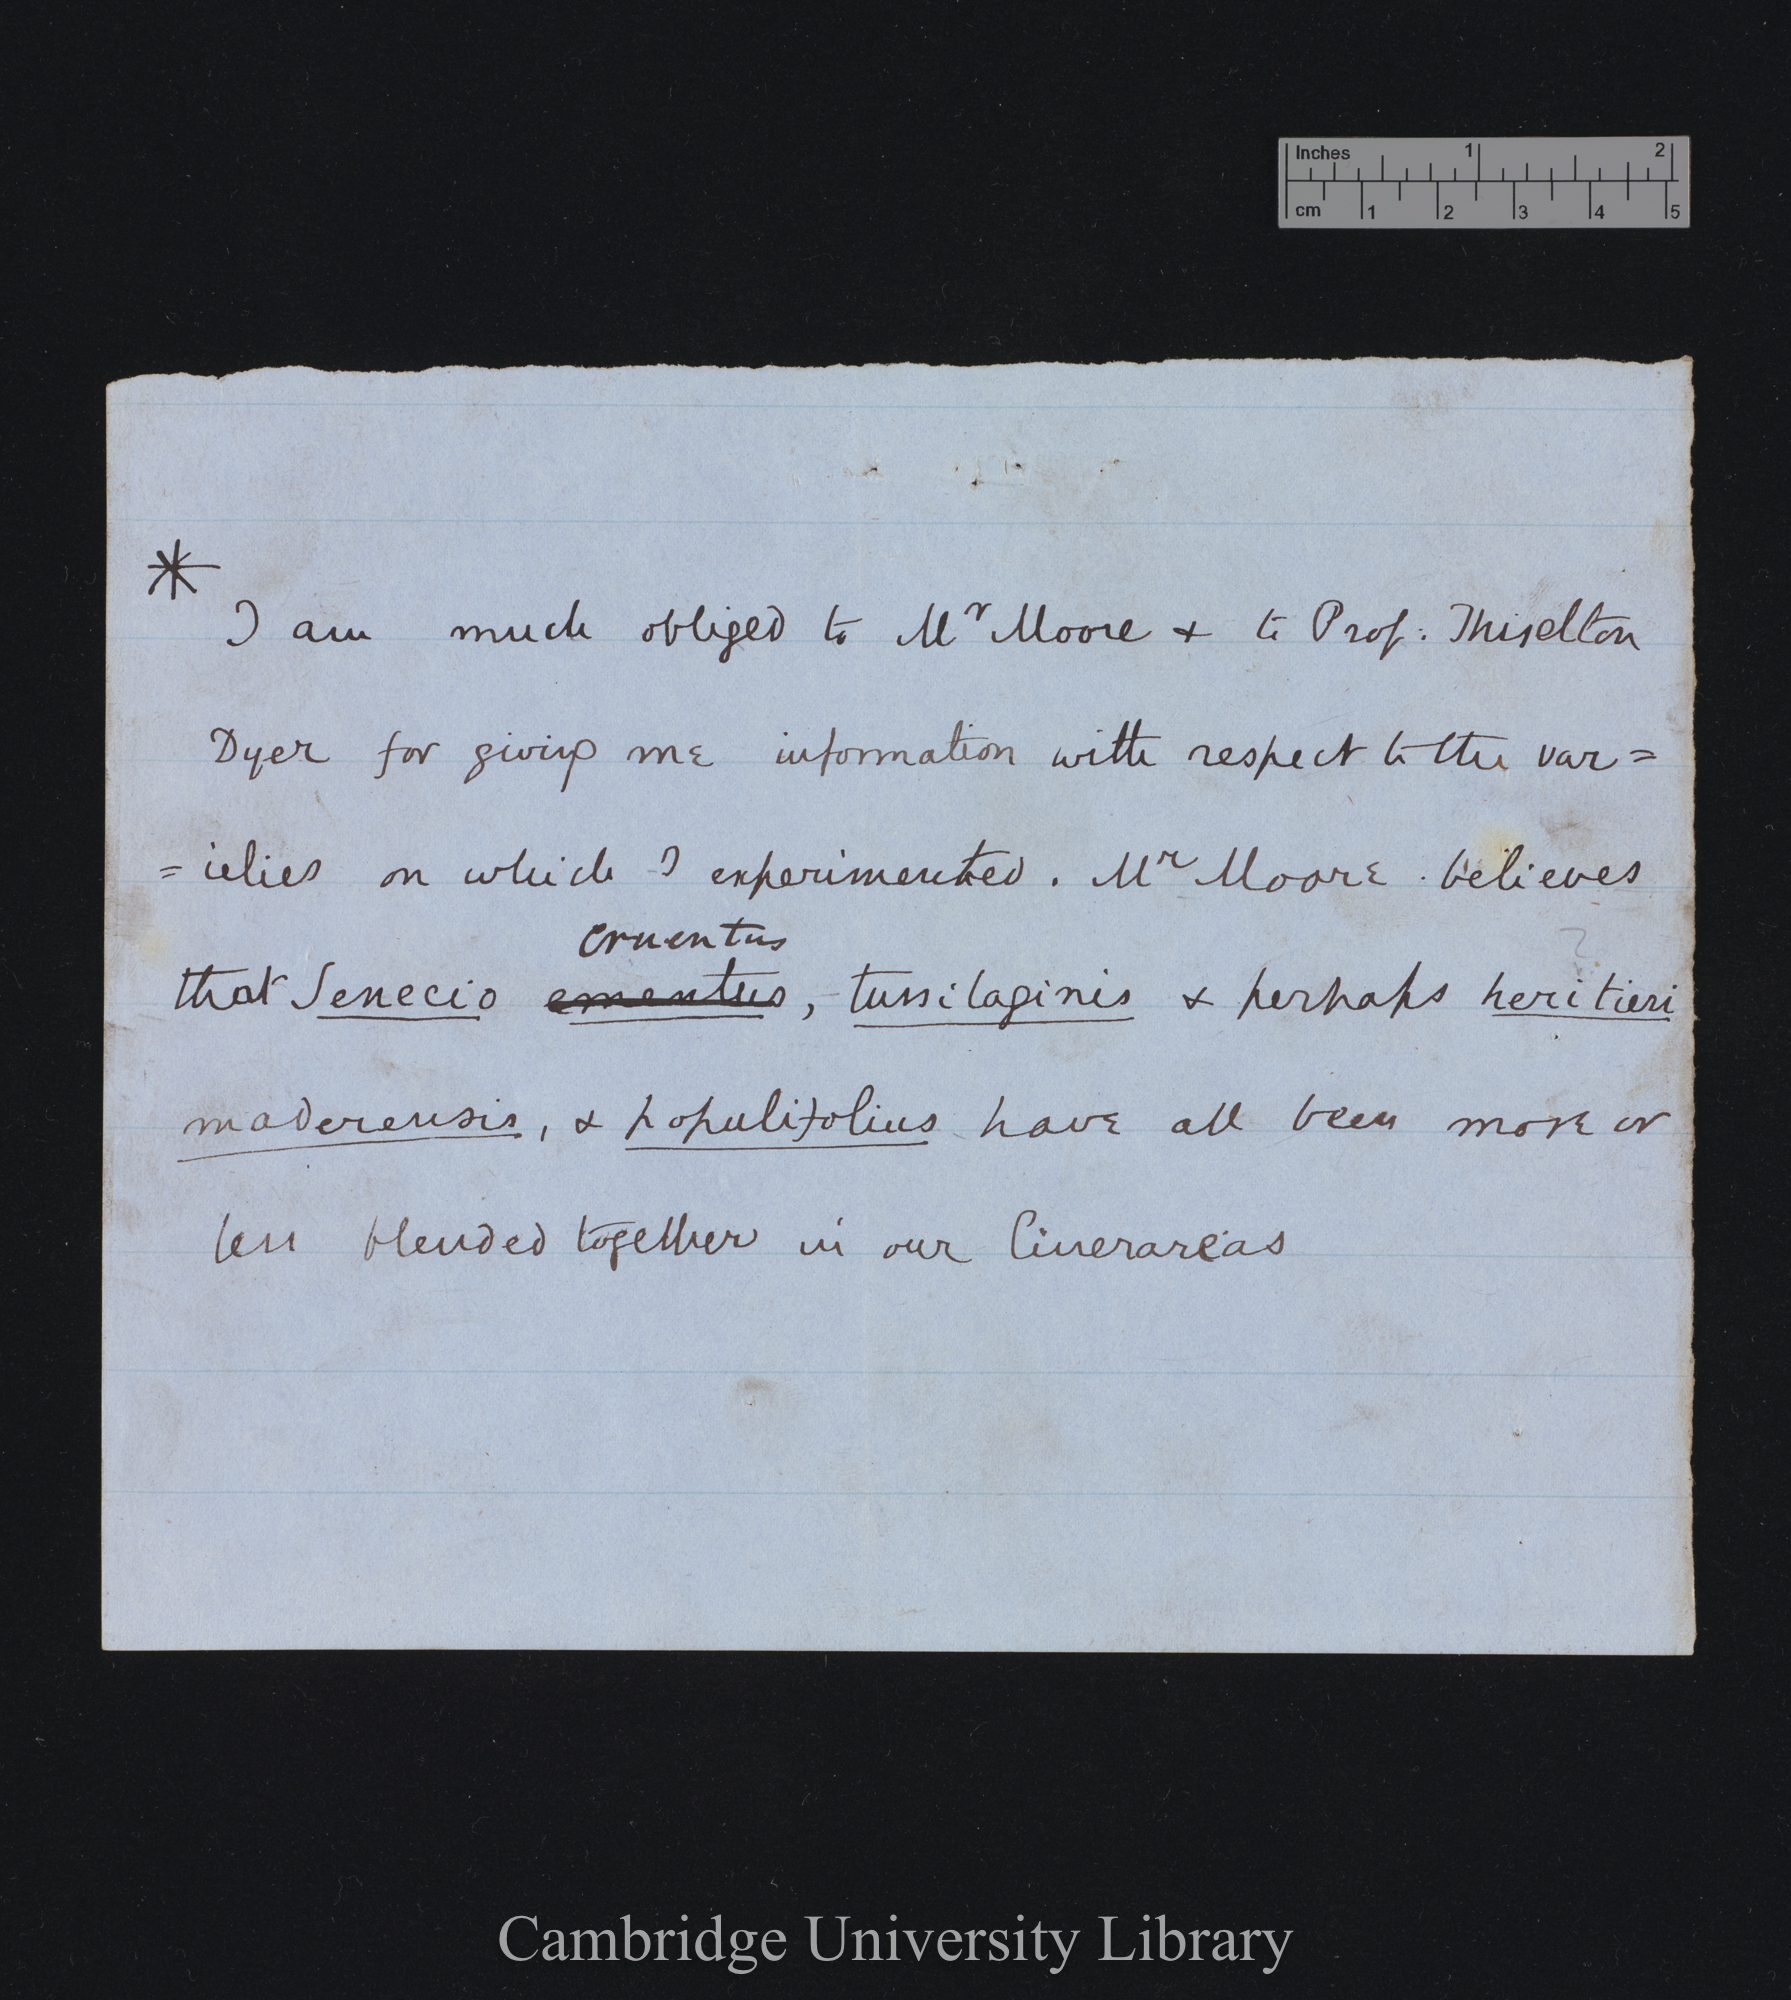 Inches 1 2
cm 1 2 3 4 5
* I am much obliged to Mr Moore & to Prof: Thiselton
Dyer for giving me information with respect to the var=
=ieties on which I experimented. Mr Moore believes
cruentus
?
that Senecio ementus, tussilaginis & perhaps heritieri
maderensis, & populifolius have all been more or
less blended together in our Cinerareas
Cambridge University Library